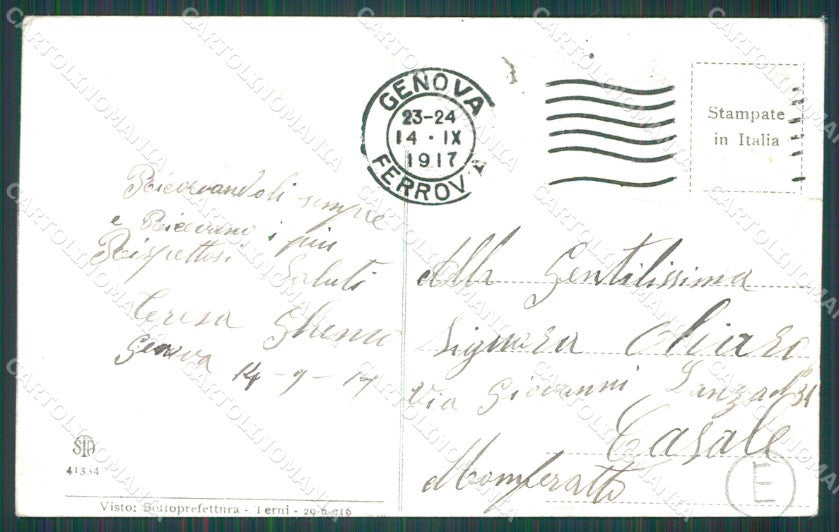 GENOVA
23-24
14 · IX
1917
FERROVIA
Stampate
in Italia
Ricordandoli sempre
e Ricevano i più
Rispettosi Saluti
Teresa
Genova 14-9-17
Alla Gentilissima
Signora Oliaro
Via Giovanni Lanza
Casale
Monferatto
41384
Visto: Sottoprefettura - Terni - 29-6-916
E
CARTOLINOMANIA